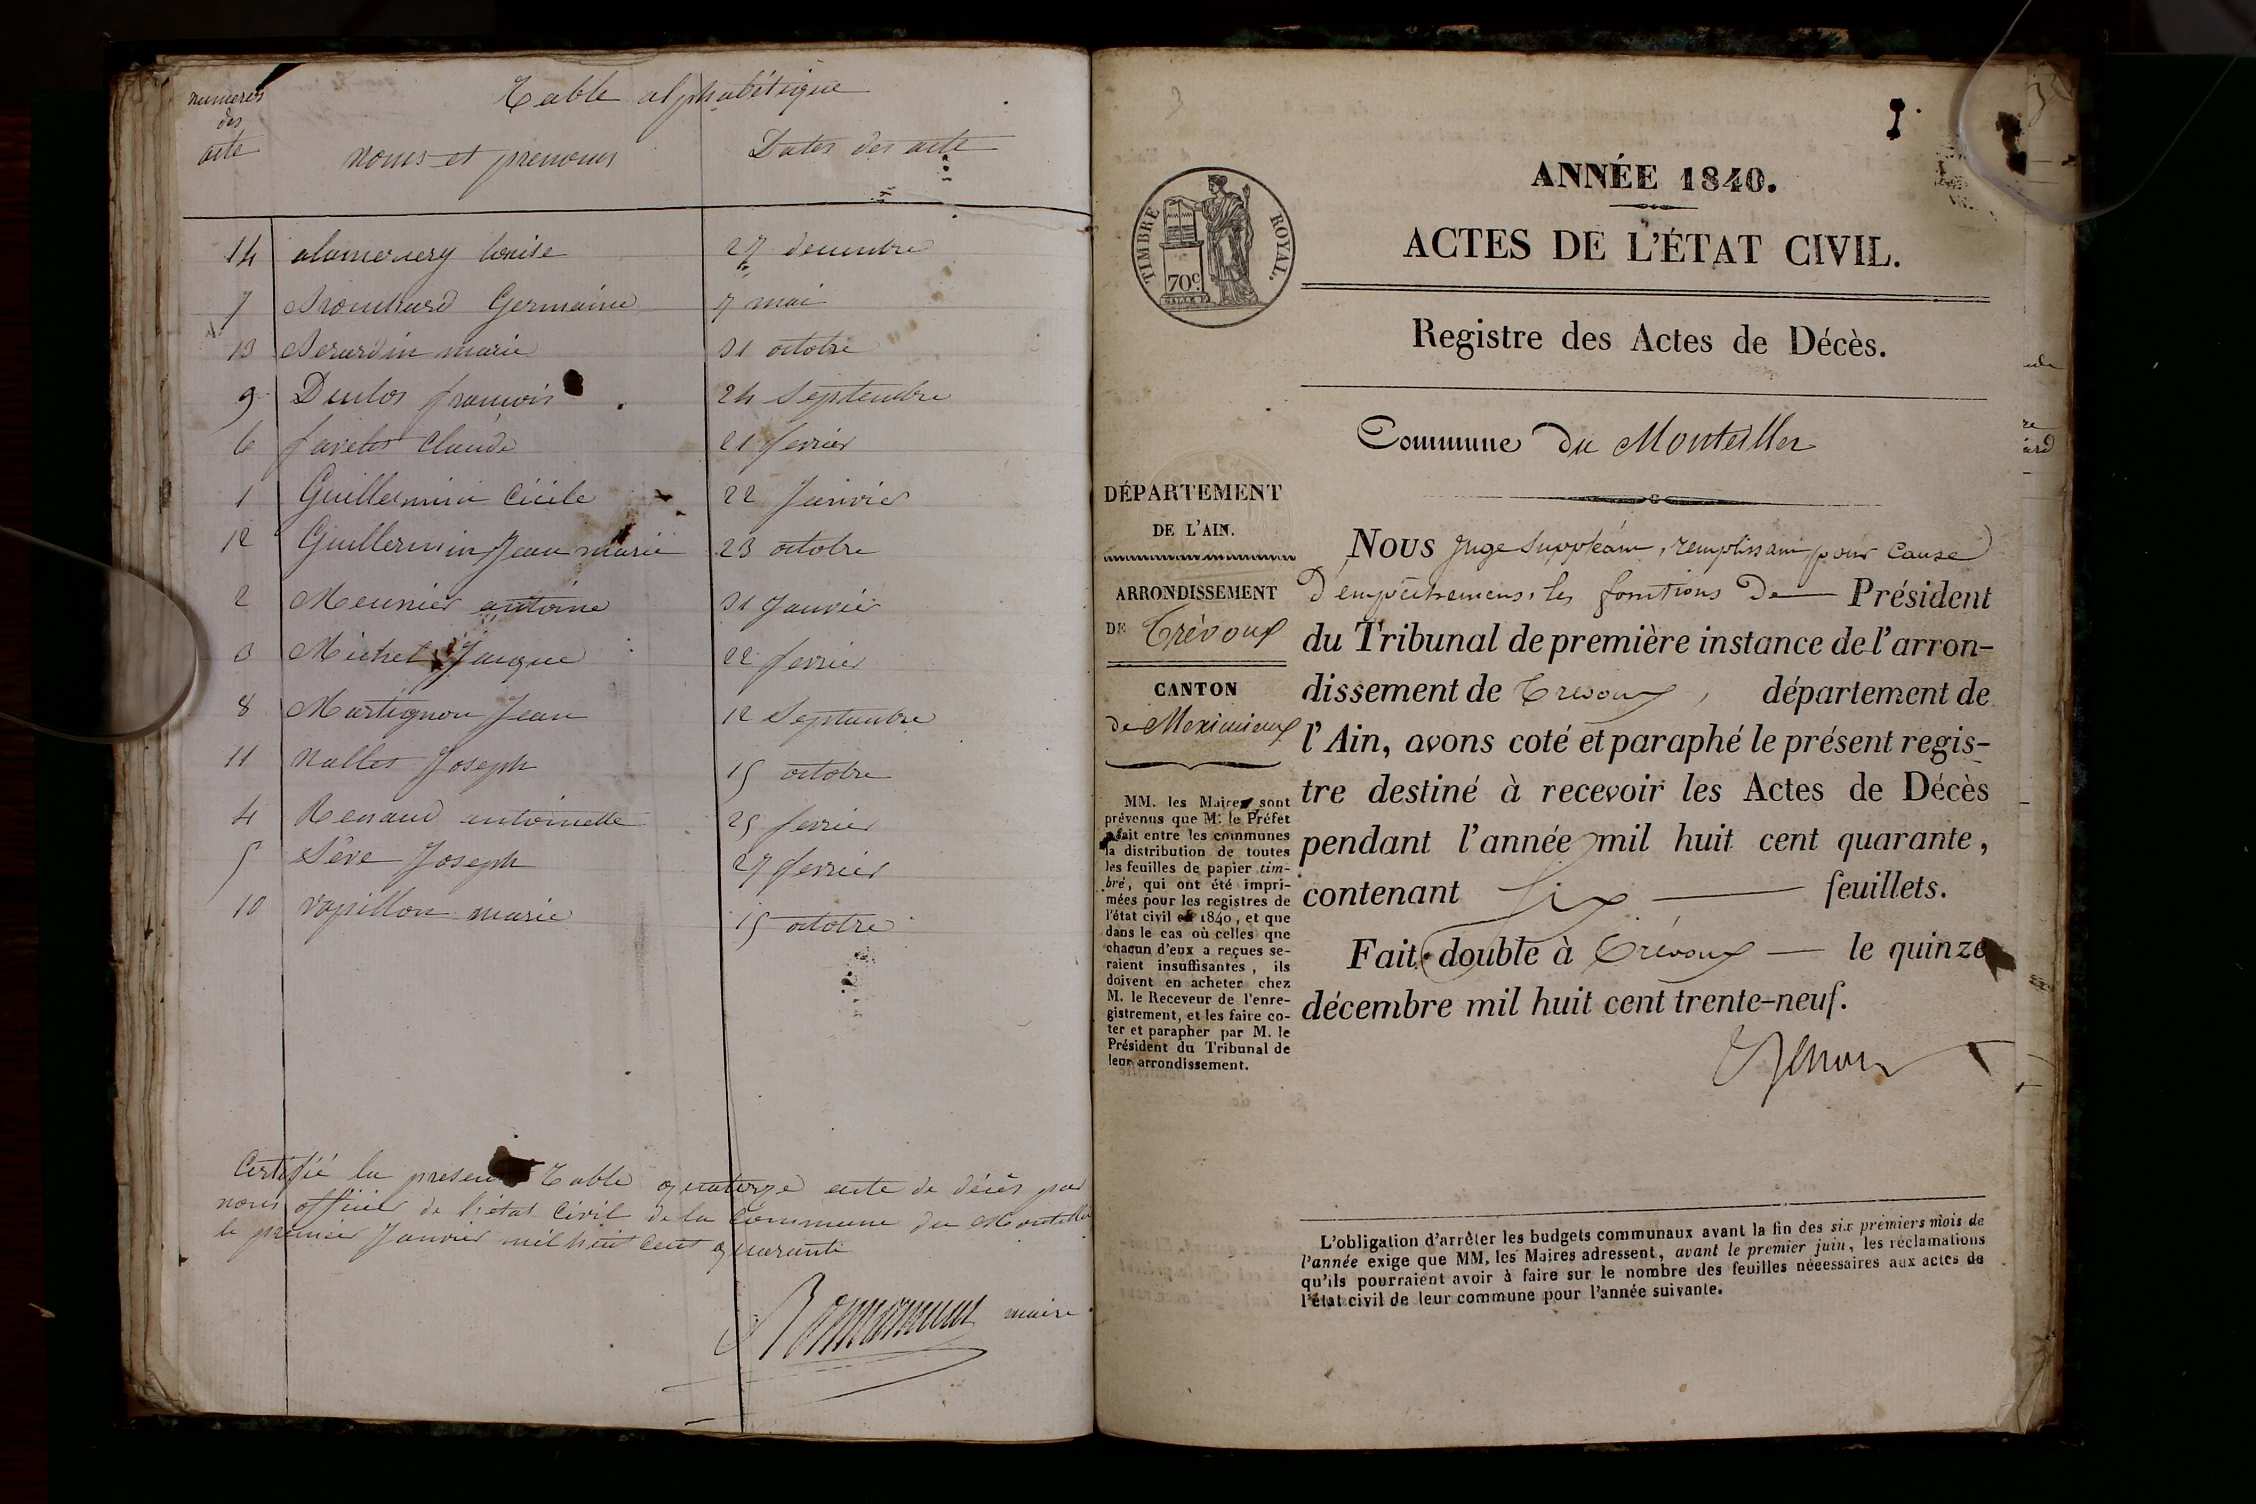 Table alphabétique
numeros
des
acte
noms et prenoms
Dates des acte
14 alamercery Louise 27 decembre
7 Brouchard Germaine 7 mai
13 Berardin marie 31 octobre
9 Duclos francois 24 Septembre
6 favelet Claude 21 fevrier
1 Guillermin Cécile 22 Janvier
12 Guillermin Jean marie 23 octobre
2 Meunier antoine 31 Janvier
3 Michel Jacque 22 fevrier
8 Martignon Jean 12 Septembre
11 nallet Joseph 15 octobre
4 Renaud antoinette 25 fevrier
5 Séve Joseph 27 fevrier
10 vapillon marie 15 octobre
Certifié la presente Table quatorze acte de décès par
nous officier de l'état Civil de la Commune du Montellier
le premier Janvier mil huit cent quarante
maire
1
ANNÉE 1840.
TIMBRE ROYAL.
70c
ACTES DE L'ÉTAT CIVIL.
Registre des Actes de Décès.
Commune du Montellier
DÉPARTEMENT
DE L'AIN.
ARRONDISSEMENT
DE Trévoux
CANTON
de Meximieux
MM. les Maires sont
prévenus que M. le Préfet
a fait entre les communes
la distribution de toutes
les feuilles de papier tim-
bré, qui ont été impri-
mées pour les registres de
l'état civil de 1840, et que
dans le cas où celles que
chacun d'eux a reçues se-
raient insuffisantes, ils
doivent en acheter chez
M. le Receveur de l'enre-
gistrement, et les faire co-
ter et parapher par M. le
Président du Tribunal de
leur arrondissement.
NOUS Juge Suppléant, remplissant pour Cause
D'empêchement, les fonctions De Président
du Tribunal de première instance de l'arron-
dissement de Trevoux, département de
l'Ain, avons coté et paraphé le présent regis-
tre destiné à recevoir les Actes de Décès
pendant l'année mil huit cent quarante,
contenant Six feuillets.
Fait double à Trévoux le quinze
décembre mil huit cent trente-neuf.
L'obligation d'arrêter les budgets communaux avant la fin des six premiers mois de
l'année exige que MM. les Maires adressent, avant le premier juin, les réclamations
qu'ils pourraient avoir à faire sur le nombre des feuilles nécessaires aux actes de
l'état civil de leur commune pour l'année suivante.